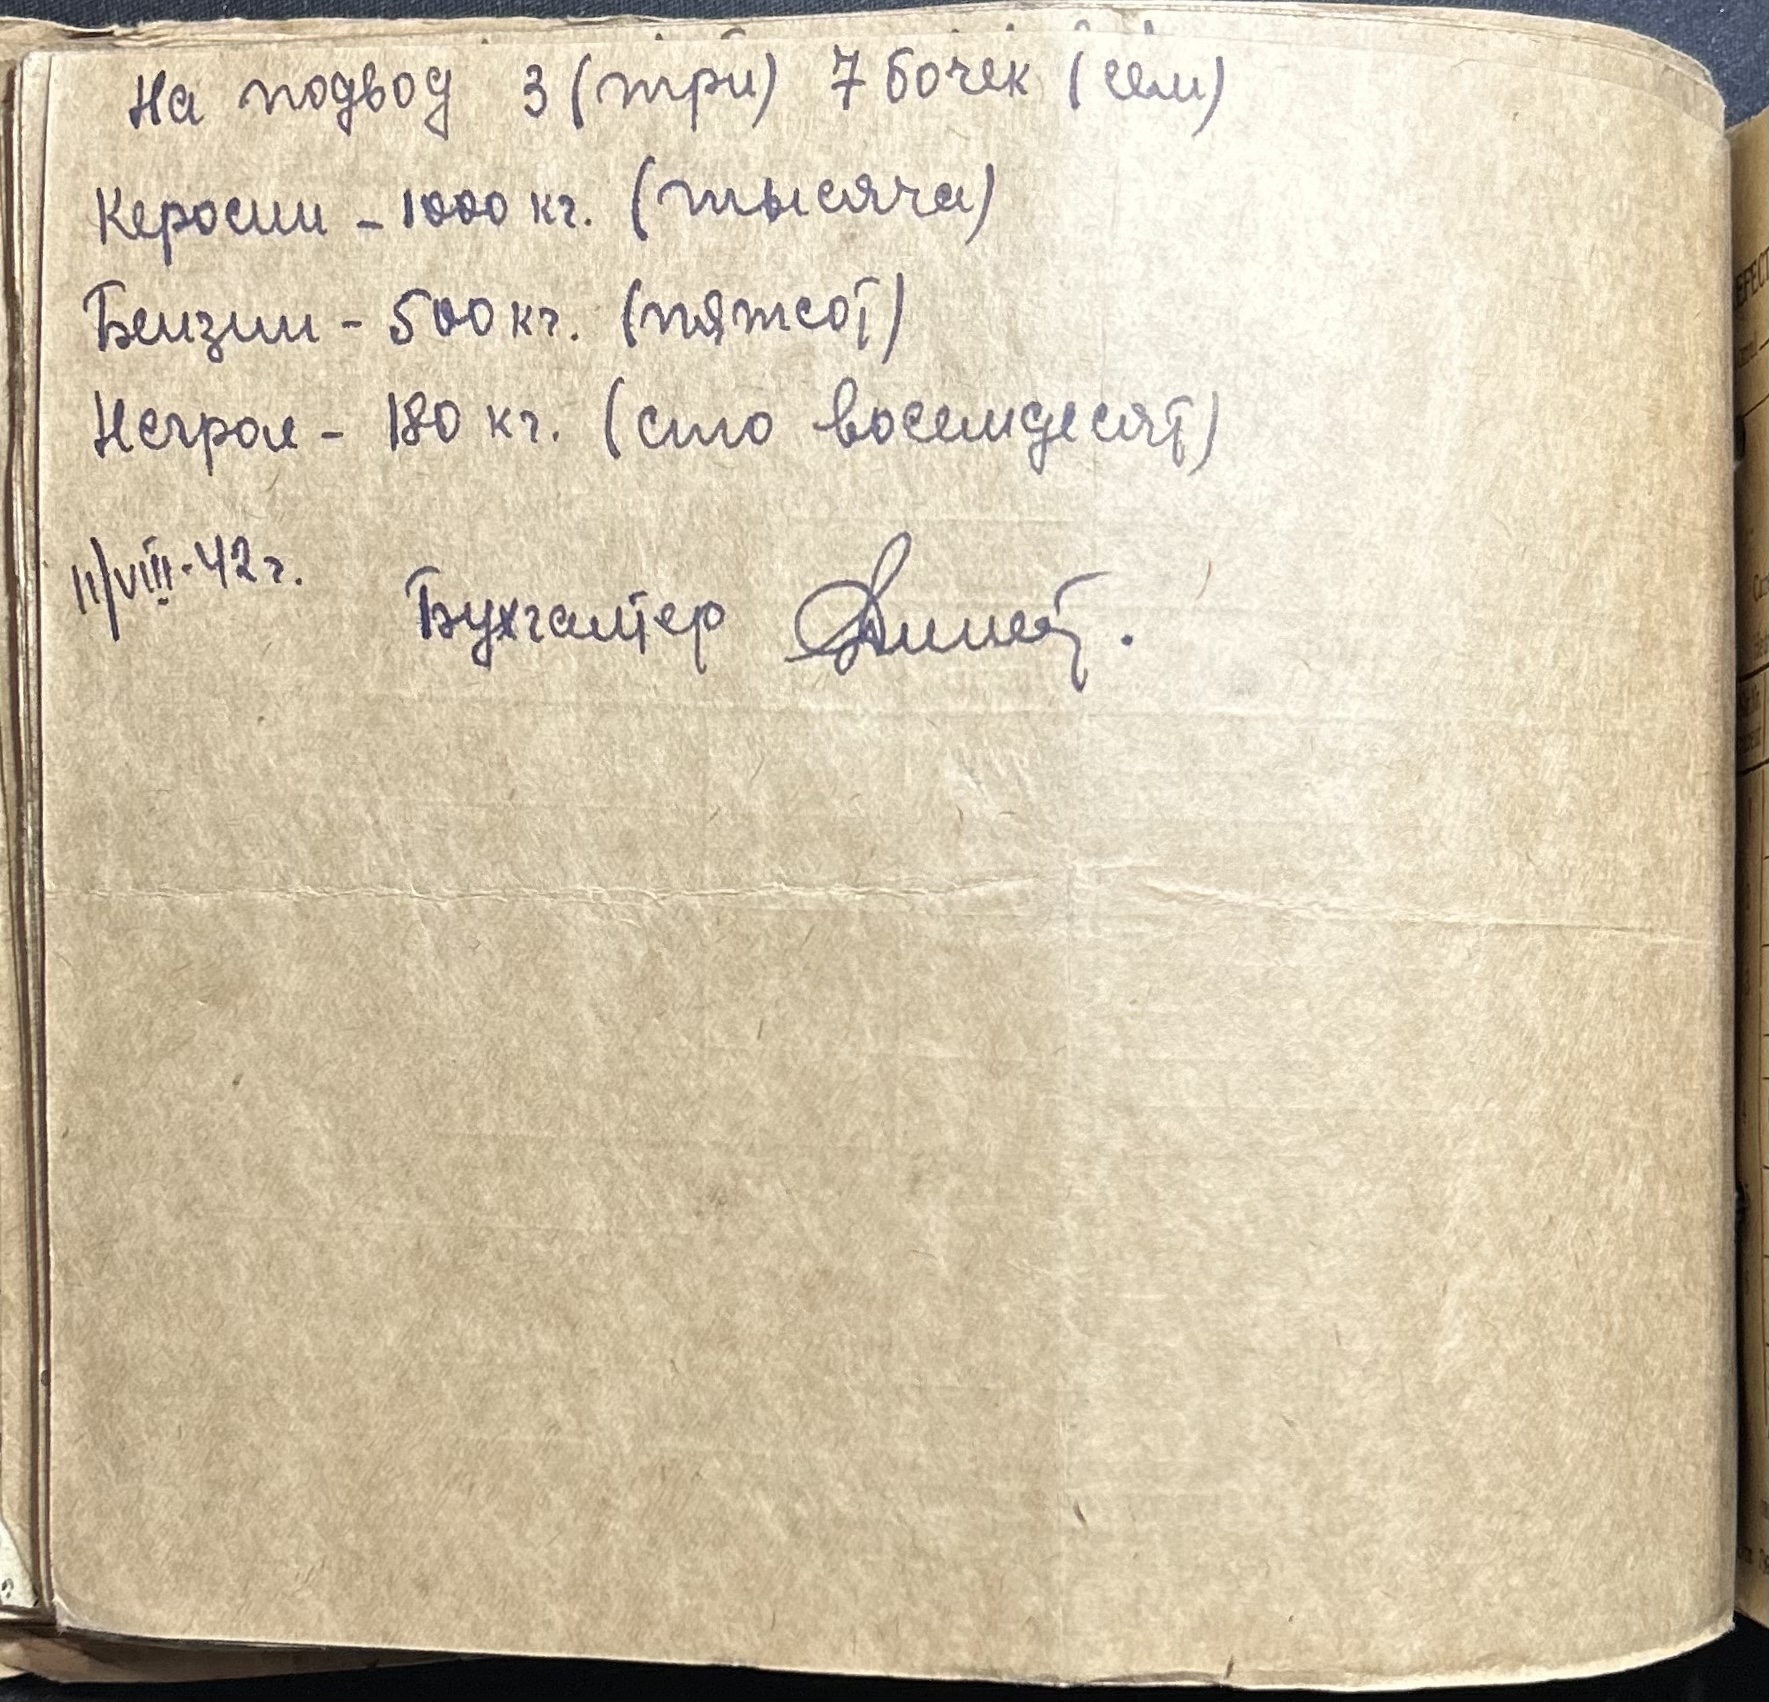 На подвод 3 (три) 7 бочек (сем)
Керосин - 1000 кг. (тысяча)
Бензин - 500 кг. (пятсот)
Негрол - 180 кг. (сто восемдесят)
11/VIII-42 г.
Бухгалтер